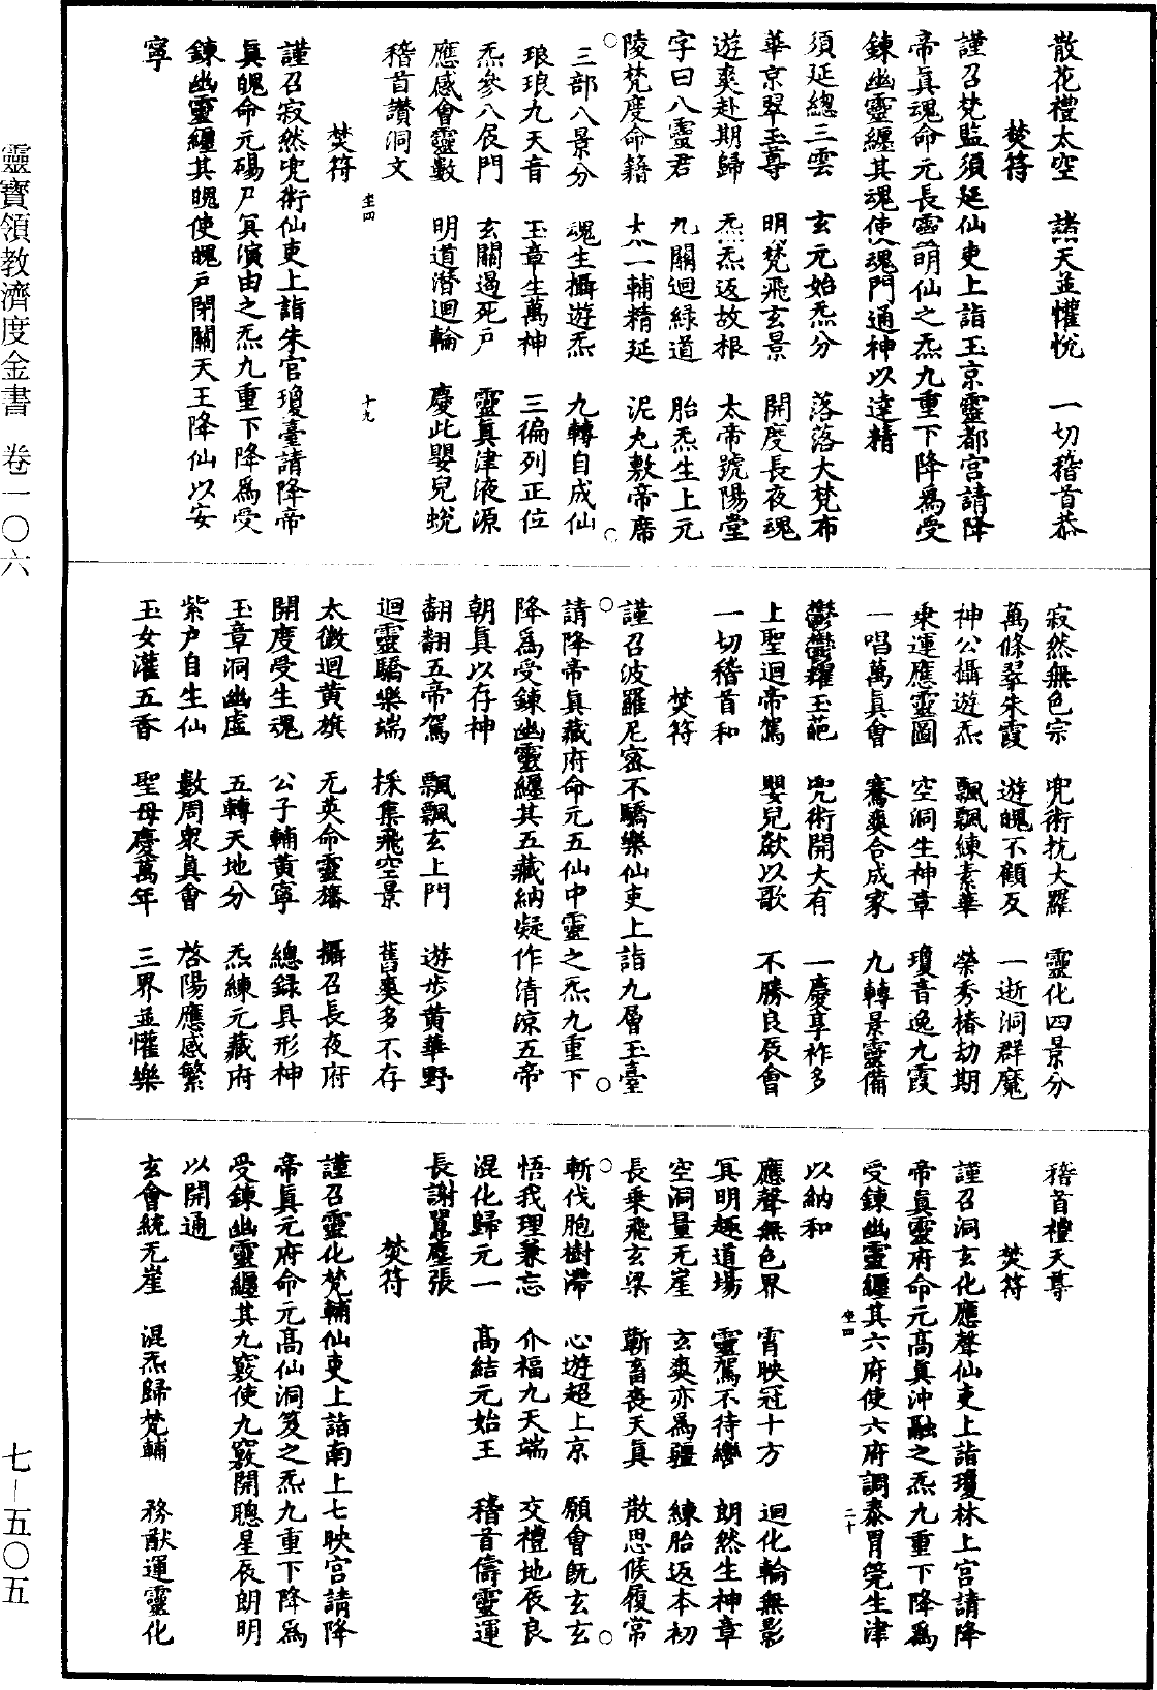 散花禮太空　諸天並懽悅　一切稽首恭
焚符
謹召梵監須延仙吏上詣玉京靈都宮請降
帝真魂命元長靈明仙之炁九重下降為受
鍊幽靈纏其魂使魂門通神以達精
須延總三雲　玄元始炁分　落落大梵布
華京翠玉尊　明梵飛玄景　開度長夜魂
遊爽赴期歸　炁炁返故根　太帝號陽堂
字曰八靈君　九關迴綠道　胎炁生上元
陵梵度命籍　太一輔精延　泥丸敷帝席
三部八景分　魂生攝遊炁　九轉自成仙
琅琅九天音　玉章生萬神　三徧列正位
炁參八辰門　玄關遏死戶　靈真津液源
應感會靈數　明道潛迴輪　慶此嬰兒蛻
稽首讚洞文
坐四　十九
焚符
謹召寂然兜術仙吏上詣朱官瓊臺請降帝
真魄命元碭尸冥演由之炁九重下降為受
鍊幽靈纏其魄使魄戶閉關天王降仙以安
寧
寂然無色宗　兜術抗大羅　靈化四景分
萬條翠朱霞　遊魄不顧反　一逝洞群魔
神公攝遊炁　飄飄練素華　榮秀椿劫期
乘運應靈圖　空洞生神章　瓊音逸九霞
一唱萬真會　騫爽合成家　九轉景靈備
鬱鬱耀玉葩　兜術開大有　一慶享祚多
上聖迴帝駕　嬰兒歛以歌　不勝良辰會
一切稽首和
焚符
謹召波羅尼密不驕樂仙吏上詣九層玉臺
請降帝真藏府命元五仙中靈之炁九重下
降為受鍊幽靈纏其五藏納凝作清涼五帝
朝真以存神
翻翻五帝駕　飄飄玄上門　遊步黃華野
迴靈驕樂端　採集飛空景　舊爽多不存
太微迴黃旗　无英命靈旛　攝召長夜府
開度受生魂　公子輔黃寧　總錄具形神
玉章洞幽虛　五轉天地分　炁練元藏府
紫戶自生仙　數周衆真會　啓陽應感繁
玉女灌五香　聖母慶萬年　三界並懽樂
稽首禮天尊
焚符
謹召洞玄化應聲仙吏上詣瓊林上宮請降
帝真靈府命元高真沖融之炁九重下降為
受鍊幽靈纏其六府使六府調泰胃筦生津
坐四　二十
以納和
應聲無色界　霄映冠十方　迴化輪無影
冥明趣道場　靈駕不待轡　朗然生神章
空洞量无崖　玄爽亦為疆　練胎返本初
長乘飛玄梁　蘄畜喪天真　散思候履常
斬伐胞樹滯　心遊超上京　願會旣玄玄
悟我理兼忘　介福九天端　交禮地辰良
混化歸元一　高結元始王　稽首儔靈運
長謝囂塵張
焚符
謹召靈化梵輔仙吏上詣南上七映宮請降
帝真元府命元高仙洞笈之炁九重下降為
受鍊幽靈纏其九竅使九竅開聰星辰朗明
以開通
玄會統无崖　混炁歸梵輔　務猷運靈化
靈寶領教濟度金書　卷一〇六　七—五〇五